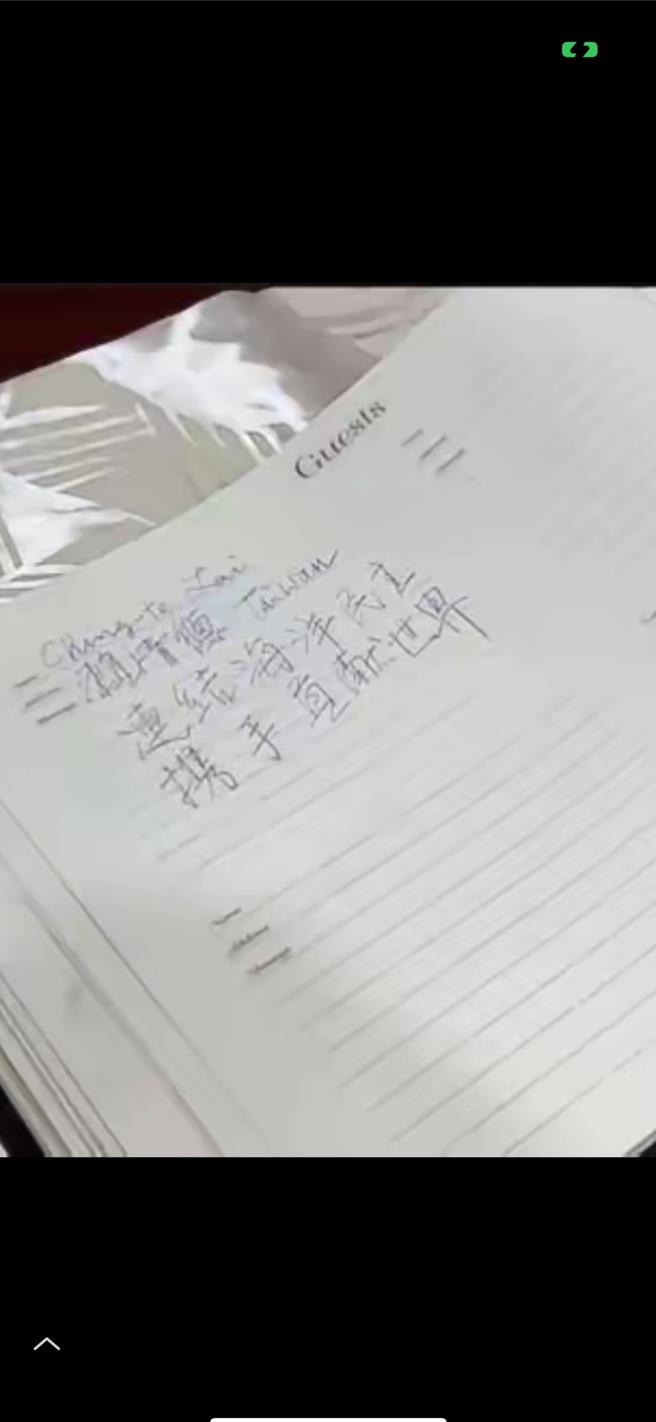 Guests
Ching-te Lai
賴清德 Taiwan
連結海洋民主
攜手貢獻世界